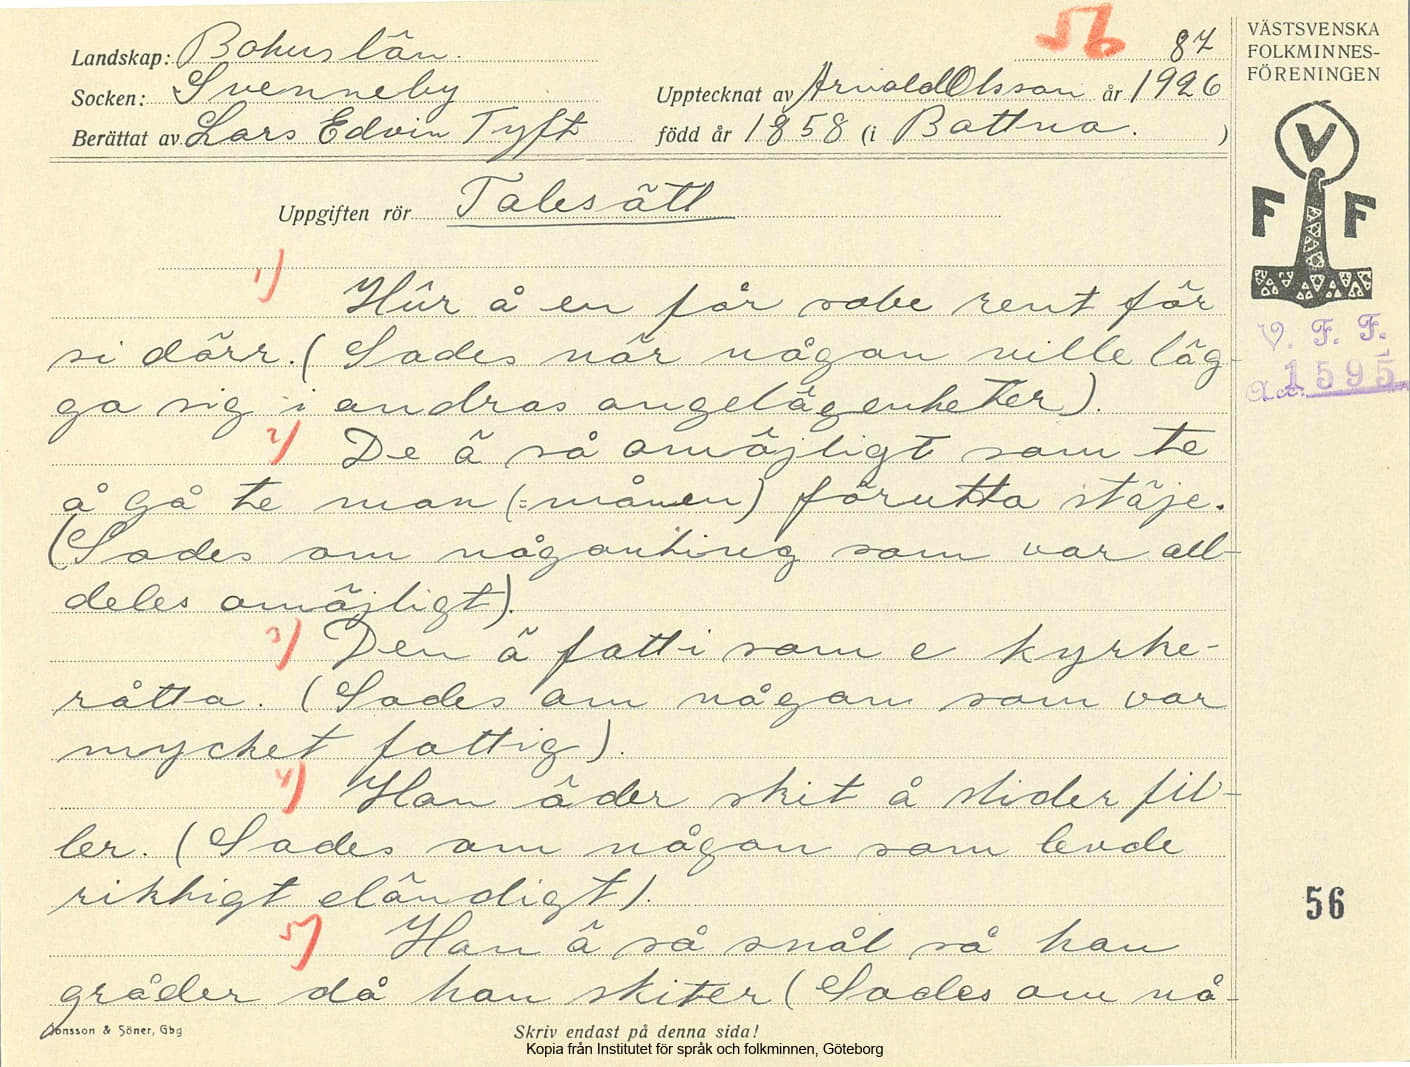 56
87
Landskap: Bohuslän.
Socken: Svenneby
Upptecknat av Arnold Olsson år 1926
Berättat av Lars Edvin Tyft
född år 1858 (i Bottna. )
Uppgiften rör Talesätt
1) Hûr å en får sobe rent för
si dörr. ( Sades när någon ville läg-
ga sig i andras angelägenheter).
2) De ä så omöjligt som te
å gå te man (=månen) förutta stäje.
(Sades om någonting som var all-
deles omöjligt).
3) Den ä fatti som e kyrke-
råtta. (Sades om någon som var
mycket fattig).
4) Han äder skit å slider fil-
ler. (Sades om någon som levde
riktigt eländigt).
5) Han ä så snål så han
gråder då han skiter (Sades om nå-
Jonsson & Söner, Gbg
Skriv endast på denna sida!
Kopia från Institutet för språk och folkminnen, Göteborg
VÄSTSVENSKA
FOLKMINNES-
FÖRENINGEN
V
F F
V. F. F.
Acc. 1595
56